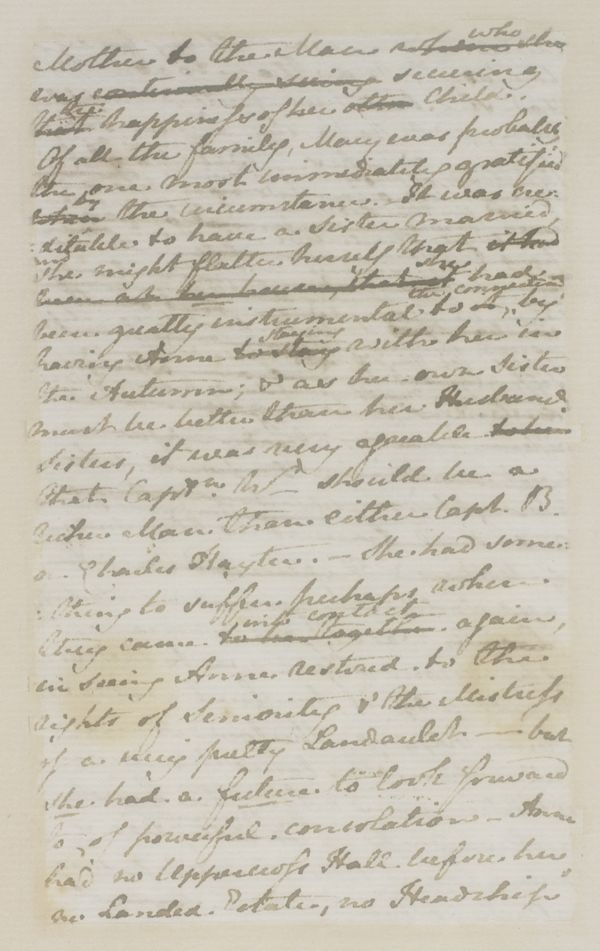 Mother to the Man who whom she
was continually seeing securing
the that happiness of her other Child.
Of all the family, Mary was probably
the one most immediately gratified
by when the circumstance. It was cre=
=ditable to have a Sister married,
and she might flatter herself that it had
been she had
been greatly instrumental to the connection, by
having Anne staying to stay with her in
the Autumn; & as her own Sister
must be better than her Husband's
Sisters, it was very agreable
that Captn. W— should be a
richer Man than either Capt. B.
or Charles Hayter. — She had some=
=thing to suffer perhaps when
they came into contact together again,
in seeing Anne restored to the
rights of Seniority & the Mistress
of a very pretty Landaulet — but
she had a future to look forward
to, of powerful consolation — Anne
had no Uppercross Hall before her,
no Landed Estate, no Headship